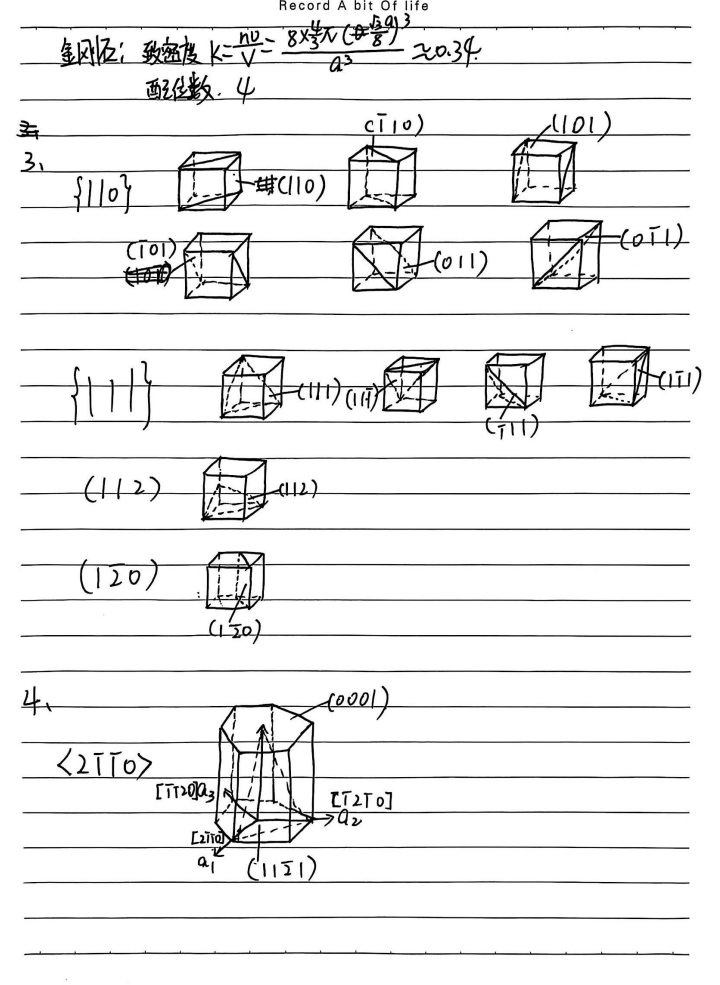 Record A bit Of life
金刚石: 致密度 K=nv/V= 8×4/3π(√3a/8)³/a³ ≈0.34.
配位数. 4
3、
{110} (110) (1̄10) (101)
(1̄01) (011) (01̄1)
{111} (111) (111̄) (1̄11) (11̄1)
(112) (112)
(12̄0)
(12̄0)
4、 (0001)
<21̄1̄0>
[1̄1̄20]a₃ [1̄21̄0]
a₂
[21̄1̄0]
a₁ (112̄1)